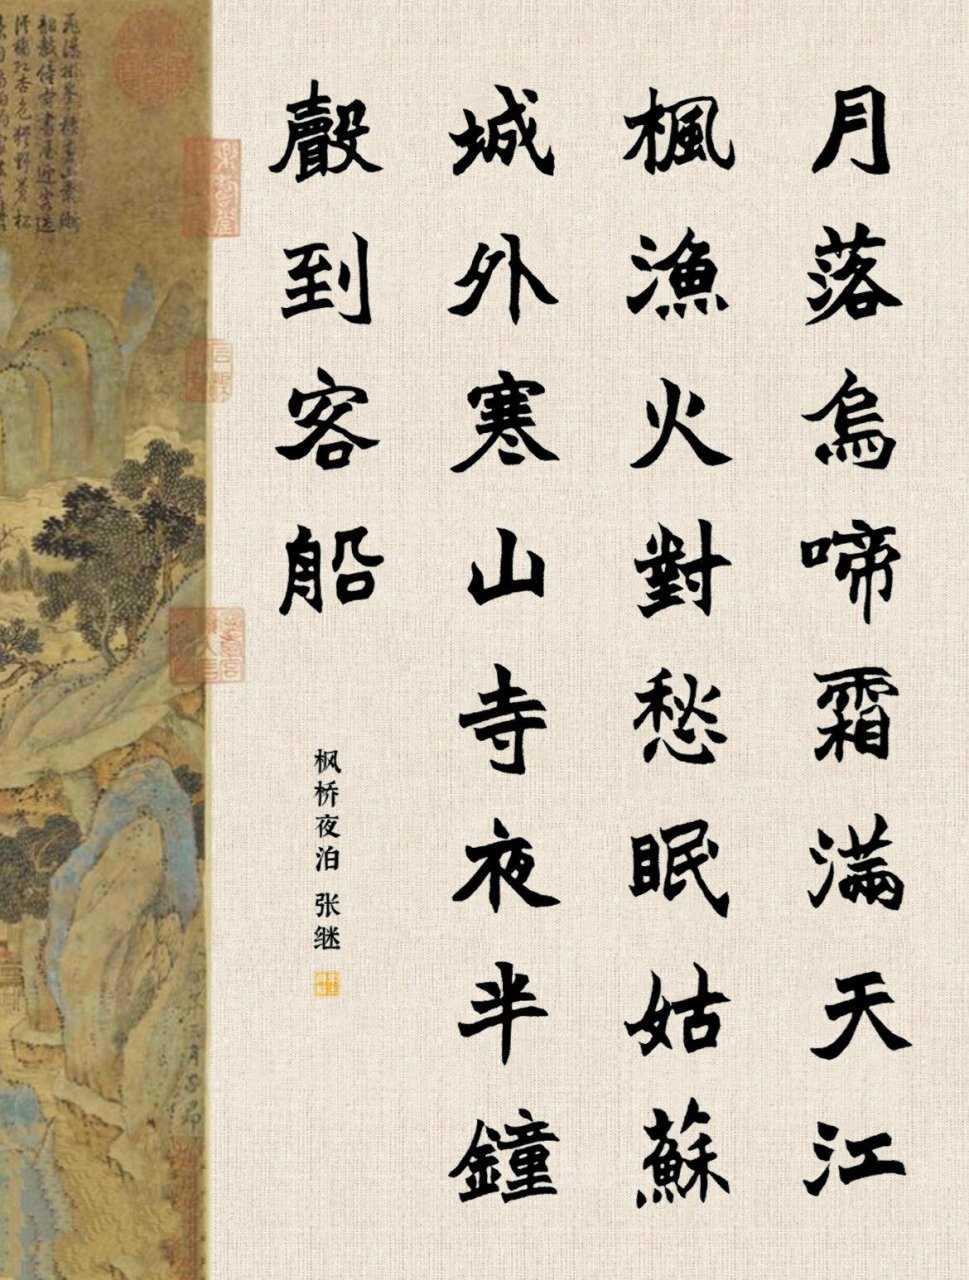 月落烏啼霜滿天江
楓漁火對愁眠姑蘇
城外寒山寺夜半鐘
聲到客船
枫桥夜泊 张继